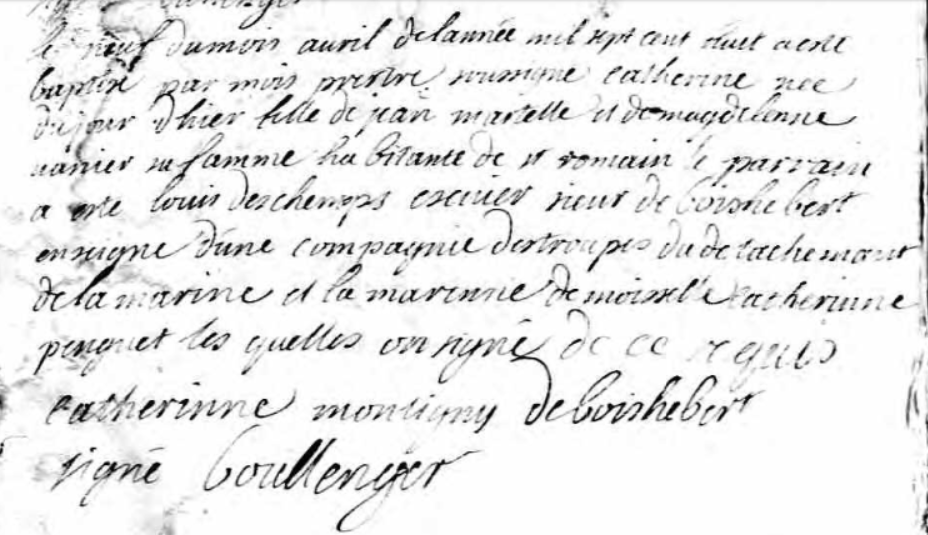 le neuf dumois avril delannée mil sept cent huit a esté
baptise par mois prestre soussigné catherine nee
du jour dhier fille de jean martelle et demagdelenne
vanier sa famme habitante de st romain le parrain
a esté louis deschemps escuier sieur de boishebert
enseigne d'une compagnie destroupes du detachemant
dela marine et la marenne demoiselle catherinne
penguet les quelles on signé de ce requis
catherinne montigny deboishebert
signé boullenger